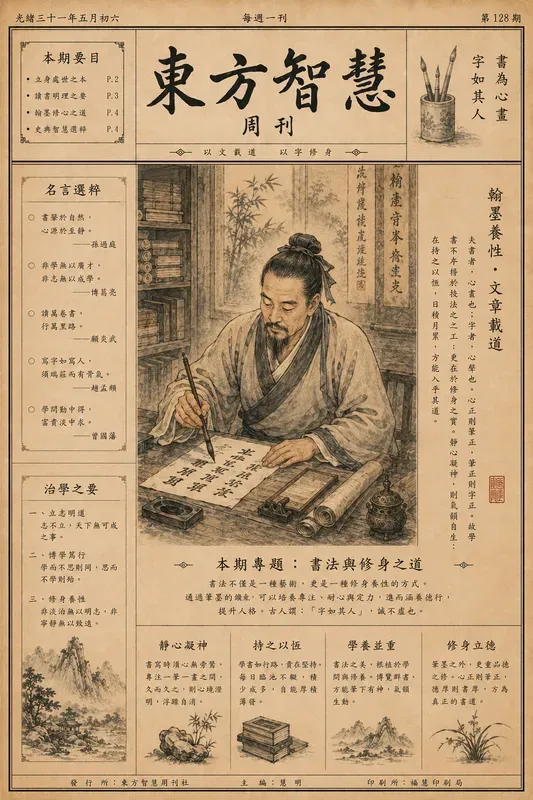 光緒三十一年五月初六
每週一刊
第128期
本期要目
• 立身處世之本 P.2
• 讀書明理之要 P.3
• 翰墨修心之道 P.4
• 史典智慧選粹 P.4
東方智慧
周刊
以文載道 以字修身
書為心畫
字如其人
名言選粹
書肇於自然，
心源於至靜。
——孫過庭
非學無以廣才，
非志無以成學。
——諸葛亮
讀萬卷書，
行萬里路。
——顧炎武
寫字如寫人，
須端莊而有骨氣。
——趙孟頫
學問勤中得，
富貴淡中求。
——曾國藩
治學之要
一、立志明道
志不立，天下無可成
之事。
二、博學篤行
學而不思則罔，思而
不學則殆。
三、修身養性
非淡泊無以明志，非
寧靜無以致遠。
翰墨養性・文章載道
夫書者，心畫也；字者，心聲也。心正則筆正，筆正則字正。故學
書不卒得於技法之工；更在於修身之實。靜心凝神，則氣韻自生；
在持之以恆，日積月累，方能入乎其道。
本期專題：書法與修身之道
書法不僅是一種藝術，更是一種修身養性的方式。
通過筆墨的鍛煉，可以培養專注、耐心與定力，進而涵養德行，
提升人格。古人謂：「字如其人」，誠不虛也。
靜心凝神
書寫時須心無旁騖，
專注一筆一畫之間，
久而久之，則心境澄
明，浮躁自消。
持之以恆
學書如行路，貴在堅持。
每日臨池不輟，積
少成多，自能厚積
薄發。
學養並重
書法之美，根植於學
問與修養。博覽群書，
方能筆下有神，氣韻
生動。
修身立德
筆墨之外，更重品德
之修。心正則筆正，
德厚則書厚，方為
真正的書道。
發行所：東方智慧周刊社
主編：慧明
印刷所：福慧印刷局